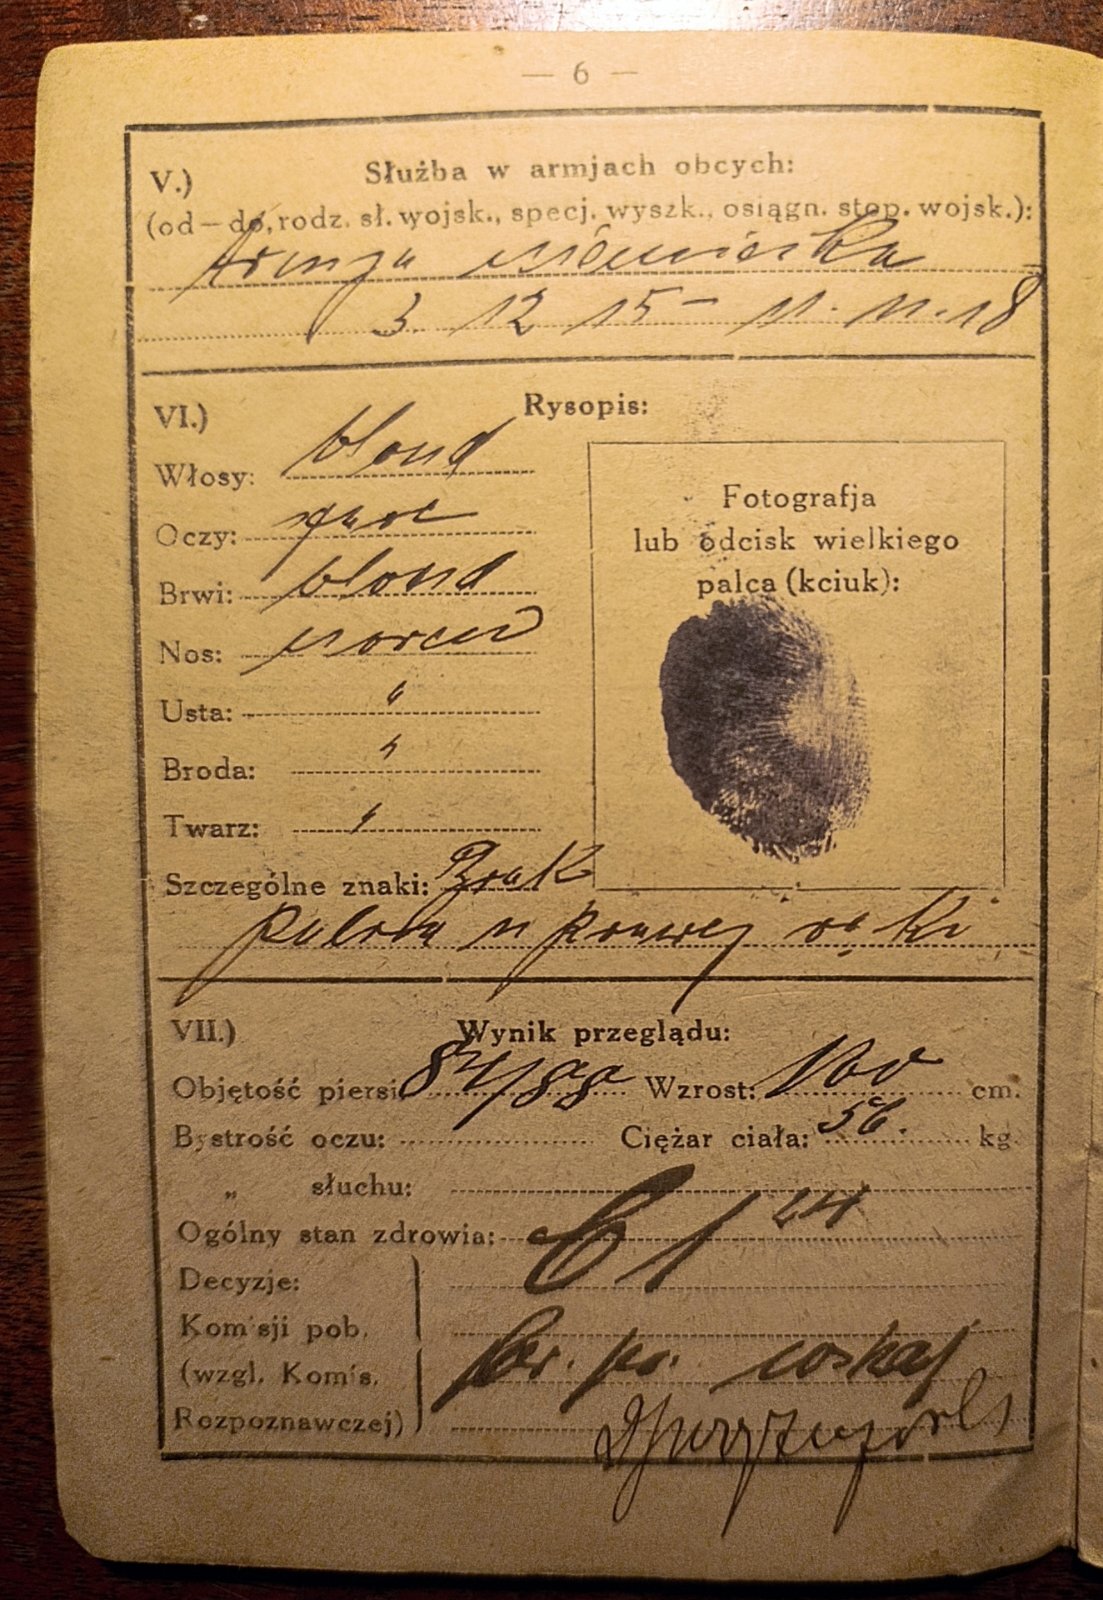 — 6 —
V.) Służba w armjach obcych:
(od—do, rodz. sł. wojsk., specj. wyszk., osiągn. stop. wojsk.):
Armja niemiecka
3. 12 15 – 11. 11. 18
VI.) Rysopis:
Włosy: blond
Oczy:
Brwi: blond
Nos:
Usta: "
Broda: "
Twarz: "
Fotografja
lub odcisk wielkiego
palca (kciuk):
Szczególne znaki: Brak
palca u prawej ręki
VII.) Wynik przeglądu:
Objętość piersi 84/88 Wzrost: 160 cm.
Bystrość oczu: Ciężar ciała: 56. kg
„ słuchu:
Ogólny stan zdrowia: C 1 24
Decyzje:
Komisji pob.
(wzgl. Komis.
Rozpoznawczej)